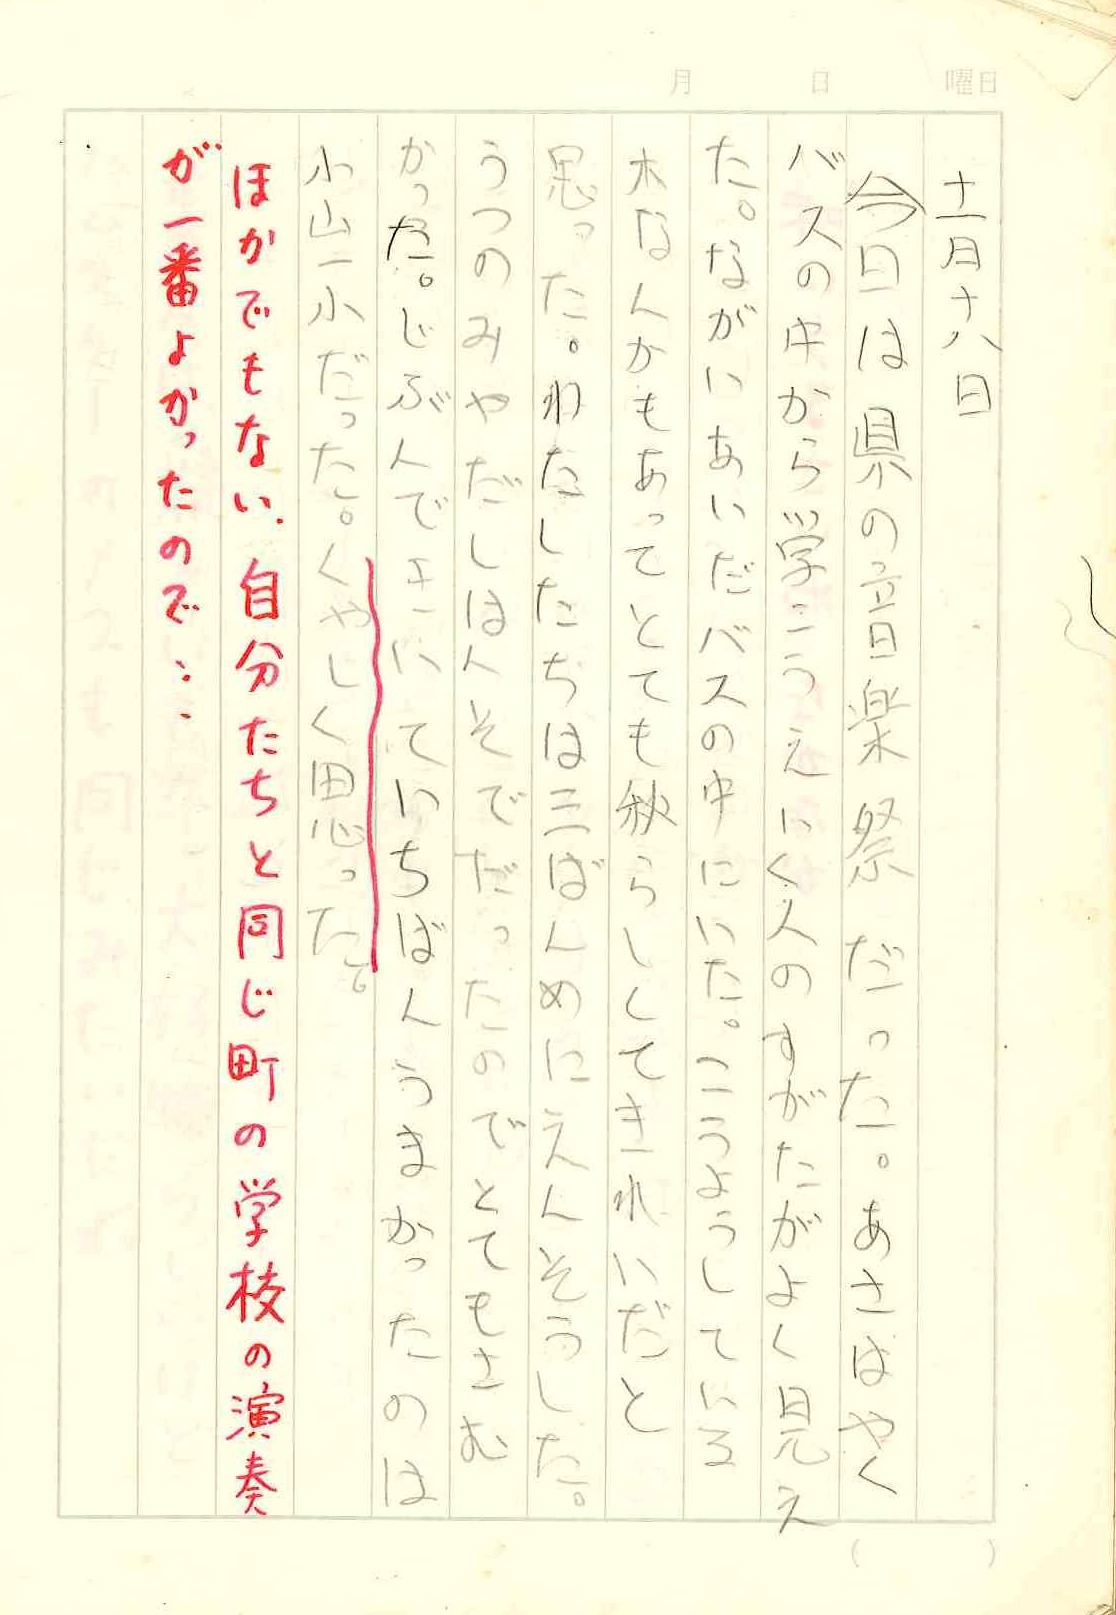 月　日　曜日
十一月十八日
今日は県の音楽祭だった。あさはやく
バスの中から学こうえいく人のすがたがよく見え
た。ながいあいだバスの中にいた。こうようしている
木なんかもあってとても秋らしくてきれいだと
思った。わたしたちは三ばんめにえんそうした。
うつのみやだしはんそでだったのでとてもさむ
かった。じぶんできいていちばんうまかったのは
小山二小だった。くやしく思った。
ほかでもない、自分たちと同じ町の学校の演奏
が一番よかったので…
(　)